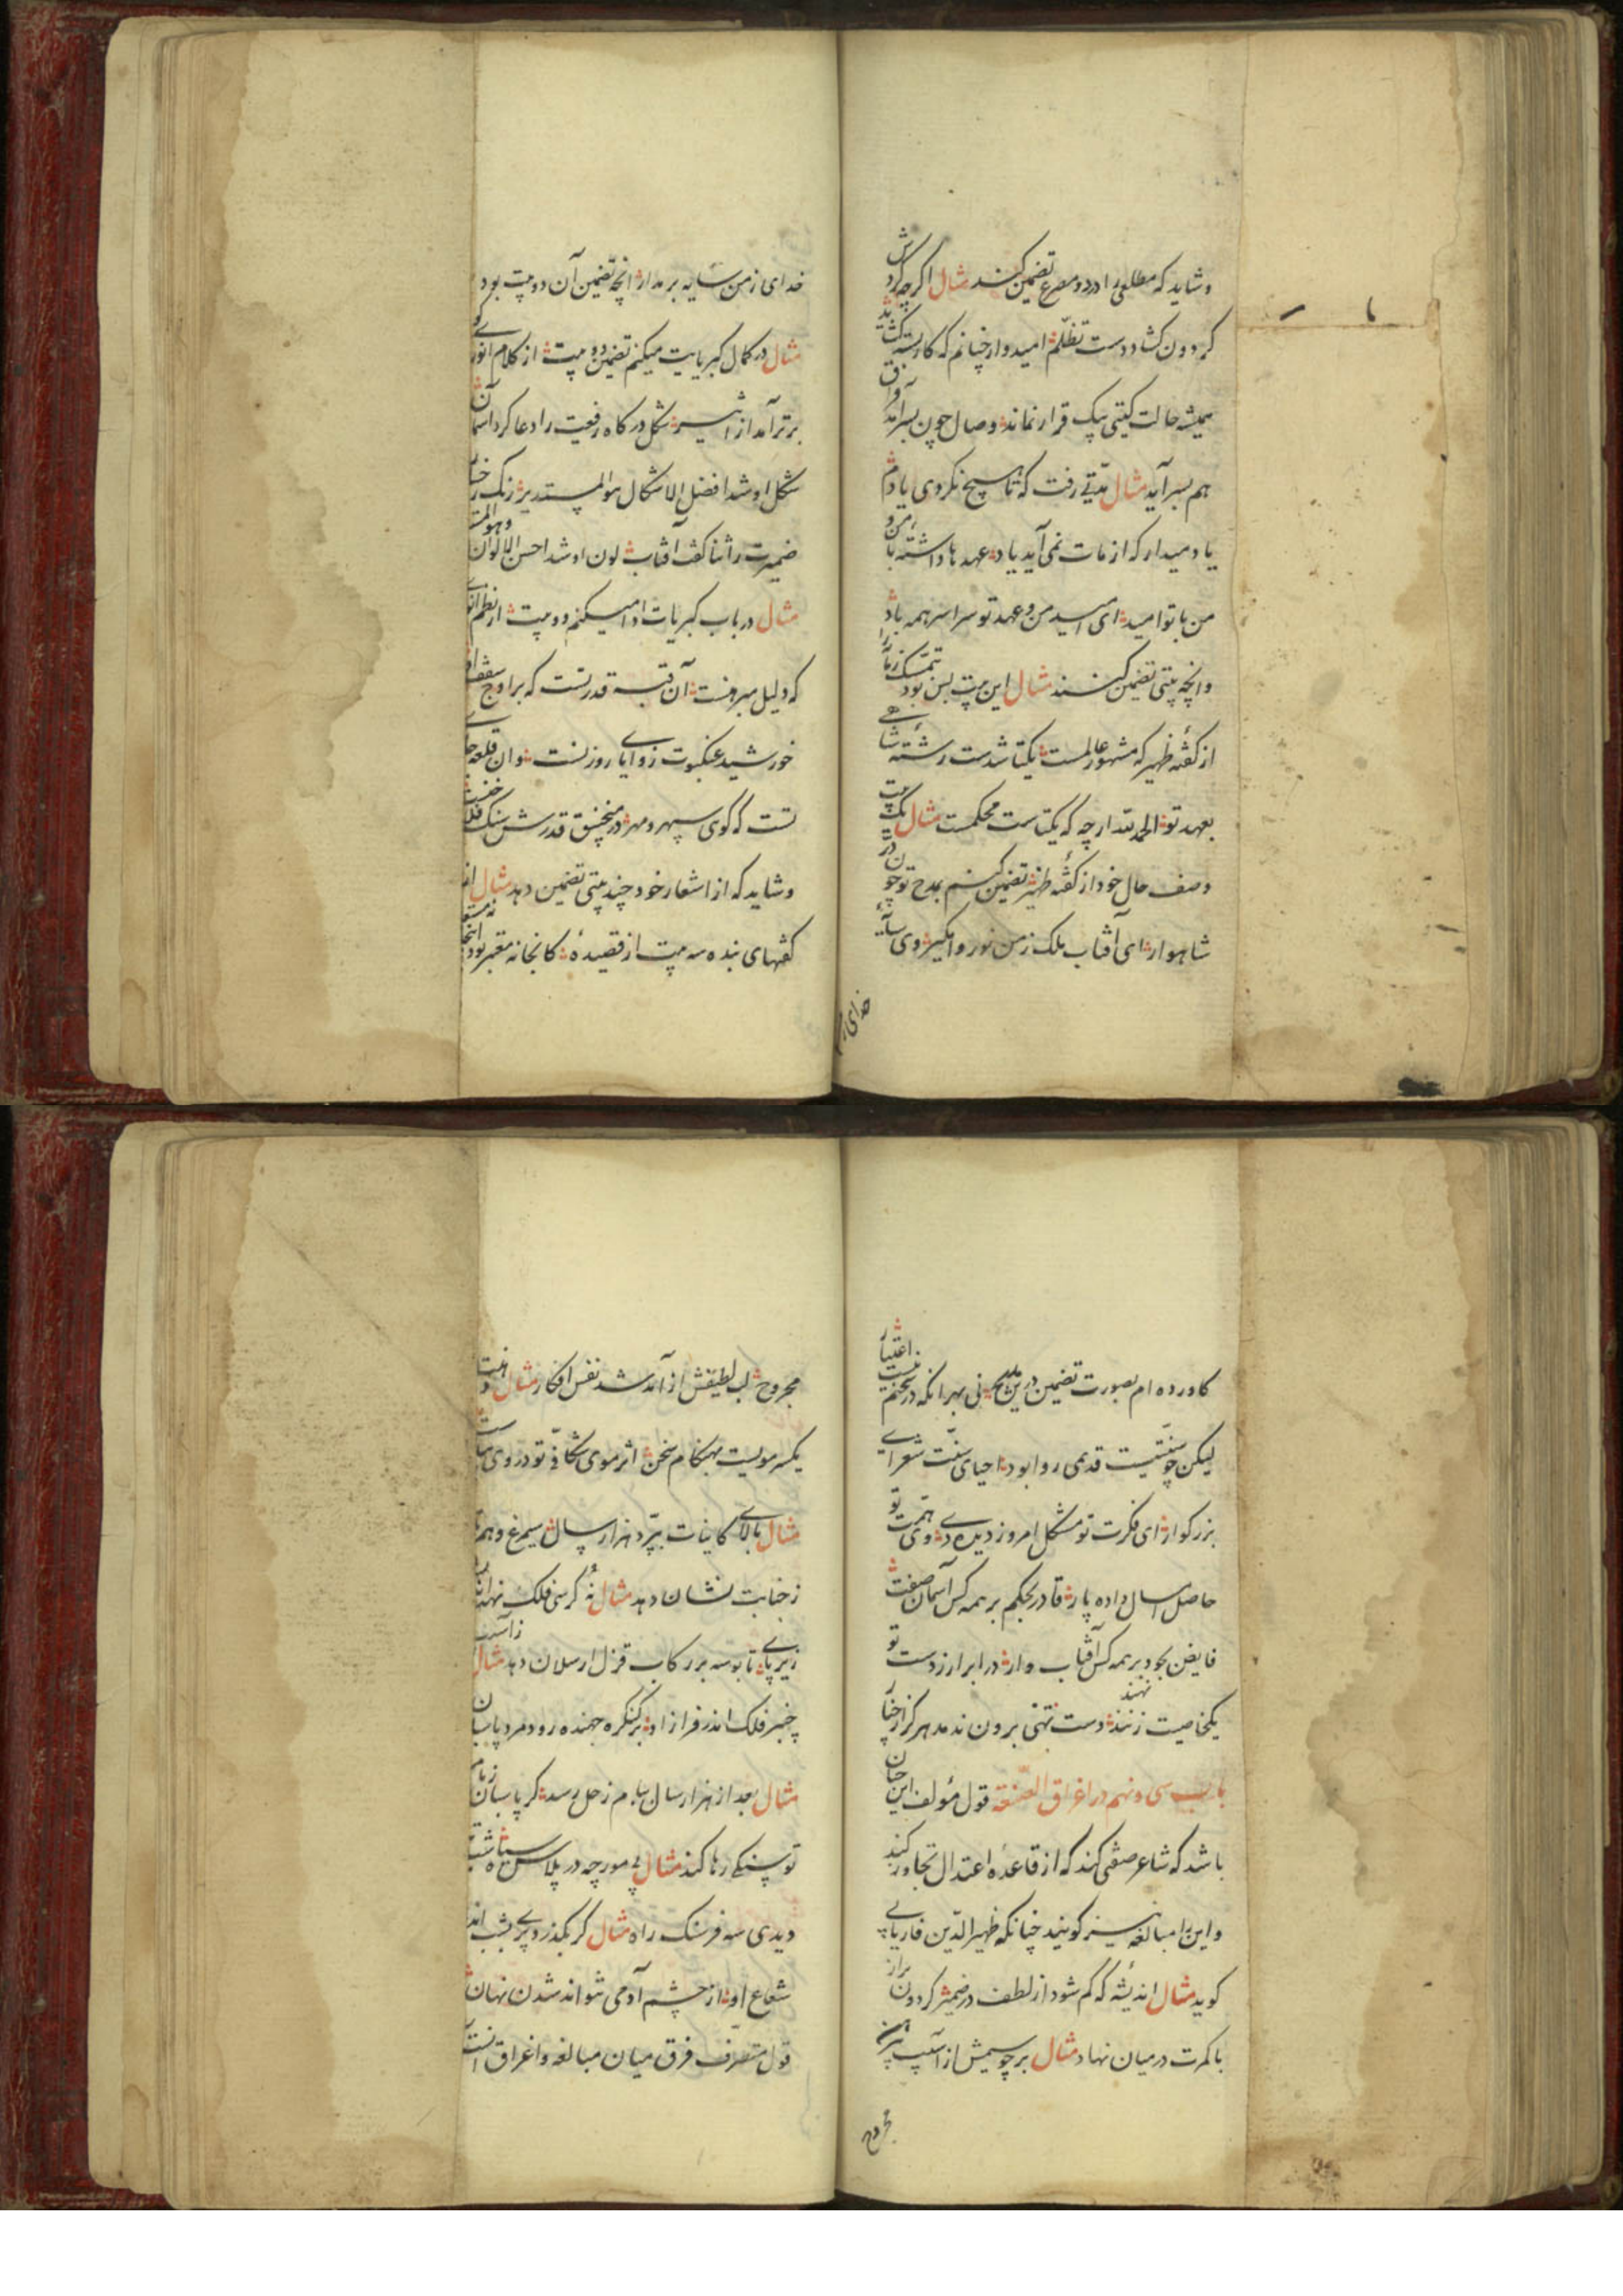 و شاید که مطلعی را در دو مصرع تضمین کنند مثال اگر چه کرد
کردون کشاد دست تظلم امیدوار چنانم که کار بسته
همیشه حالت کیتی بیک قرار نماند وصال چون بسر آمد
هم بسر آید مثال مدتی رفت که تا هیچ نکردی یادم
یاد میدار که از مات نمی آید یاد عهدها داشته با من و
من با تو امید ای امید من و عهد تو سراسر همه باد
و انچه بیتی تضمین کنند مثال این بیت بس بود
از کفته ظهیر که مشهور عالمست یکتا شدست رشته
بعهد تو الحمد لله ار چه که یکتاست محکمست مثال یک بیت
وصف حال خود از کفته ظهیر تضمین کنم بمدح تو چون در
شاهوار ای آفتاب ملک ز من نور وا مگیر وی سایه
خدای ز من سایه بر مدار انچه تضمین آن دو بیت بود
مثال در کمال کبریایت میکنم تضمین دو بیت از کلام انوری
برتر آمد از اثیر شکل درکاه رفیعت را دعا کرد آسمان
شکل او شد افضل الاشکال هو المستدیر رنک رخسار
ضمیرت را ثنا کفت آفتاب لون او شد احسن الالوان
مثال در باب کبریات ادا میکنم دو بیت از نظم انوری
که دلیل مبرهنت آن قبه قدرتست که بر اوج سقف
خورشید عنکبوت زوایای روزنست وان قلعه
تست که کوی سپهر و مهر در منجنیق قدرش سنک فلاخنست
و شاید که از اشعار خود چند بیتی تضمین دهد مثال
کفتهای بنده سه بیت از قصیده کانجا نه معتبر بود
کاورده ام بصورت تضمین درین مدیح نی بهر انکه در سخنم نیست اعتبار
لیکن چو سنتیست قدیمی روا بود احیای سنت شعرای
بزرکوار ای فکرت تو مشکل امروز دیده دی وی همت تو
حاصل امسال داده پار قادر بحکم بر همه کس آسمان صفت
فایض بجود بر همه کس آفتاب وار در ابرار ز دست تو
یکخاصیت نهند دست تهی برون ندمد هرکز از چنار
باب سی و نهم در اغراق الصنعة قول مؤلف این چنان
باشد که شاعر صفتی کند که از قاعده اعتدال تجاوز کند
و این را مبالغه نیز کویند چنانکه ظهیر الدین فاریابی
کوید مثال اندیشه که کم شود از لطف در ضمیر کردون براز
با کمرت در میان نهاد مثال بر جو سیمش از آسیب پیرهن
مجروح لب لطیفش از آمد شد نفس افکار مثال
یکسر مویست بهنکام سخن اثر موی شکافی تو در روی
مثال بالای کاینات بپرد هزار سال سیمرغ وهم تا
ز جنابت نشان دهد مثال نه کرسی فلک نهد اندیشه
زیر پای تا بوسه بر رکاب قزل ارسلان دهد مثال
چنبر فلک اندر فراز او بر کنکره جهنده رود مرد پاسبان
مثال بعد از هزار سال ببام زحل رسد کر پاسبان
تو سنکی رها کند مثال پی مورچه در پلاس سیاه شب
دیدی سه فرسنک راه مثال کر بکذرد پری بشب اندر
شعاع او از چشم آدمی نتواند شدن نهان
قول متصرف فرق میان مبالغه و اغراق آنست